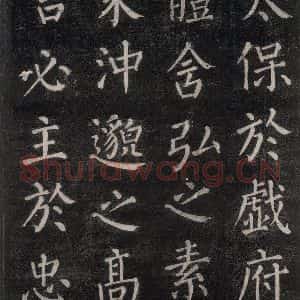 太保於戯府
體含弘之素
秉沖邈之高
言必主於忠
Shufawang.CN